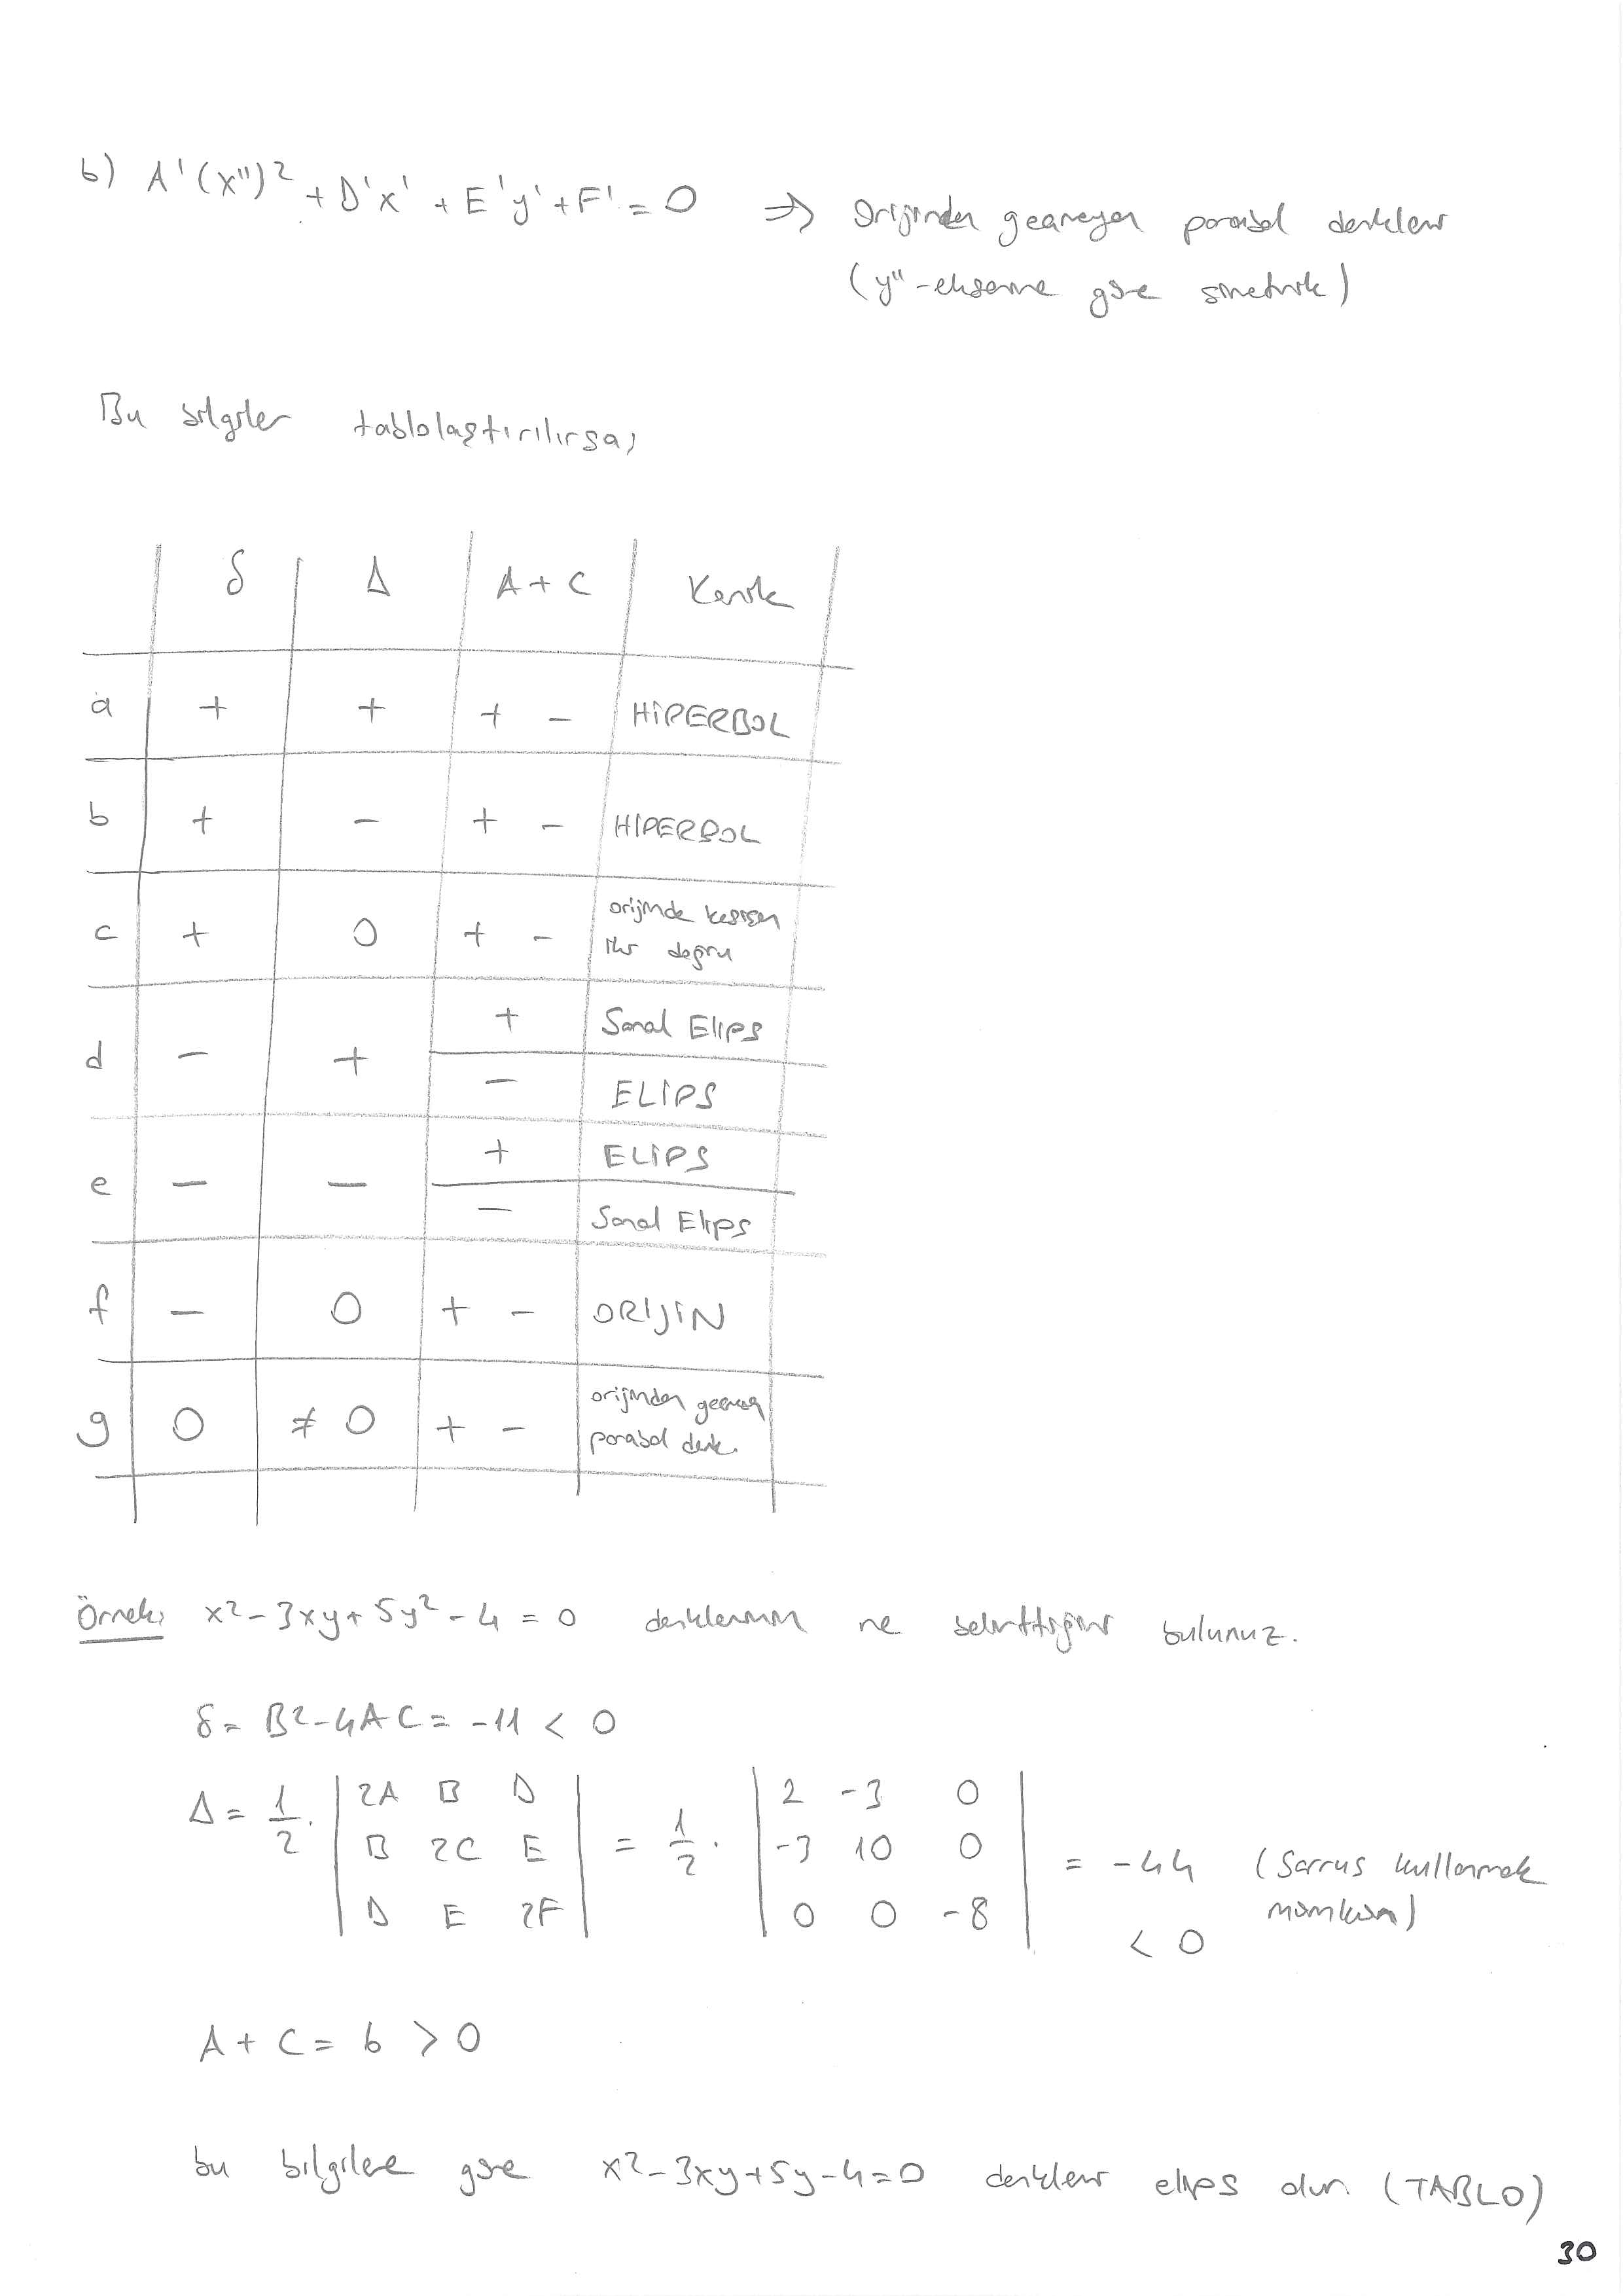 b) A'(x'')² + D'x' + E'y' + F' = 0 ⇒ Orijinden geçmeyen parabol denklemi
(y'' -eksenine göre simetrik)
Bu bilgiler tablolaştırılırsa;
δ Δ A + C Konik
a + + + - HİPERBOL
b + - + - HİPERBOL
c + 0 + - orijinde kesişen
iki doğru
+ Sanal Elips
d - +
- ELİPS
+ ELİPS
e - -
- Sanal Elips
f - 0 + - ORİJİN
g 0 ≠ 0 + - orijinden geçmeyen
parabol denk.
Örnek: x² - 3xy + 5y² - 4 = 0 denkleminin ne belirttiğini bulunuz.
δ = B² - 4AC = -11 < 0
Δ = 1/2 . | 2A B D | = 1/2 . | 2 -3 0 |
| B 2C E | | -3 10 0 | = -44 (Sarrus kullanmak
| D E 2F | | 0 0 -8 | < 0 mümkün)
A + C = 6 > 0
bu bilgilere göre x² - 3xy + 5y - 4 = 0 denklemi elips olur. (TABLO)
30